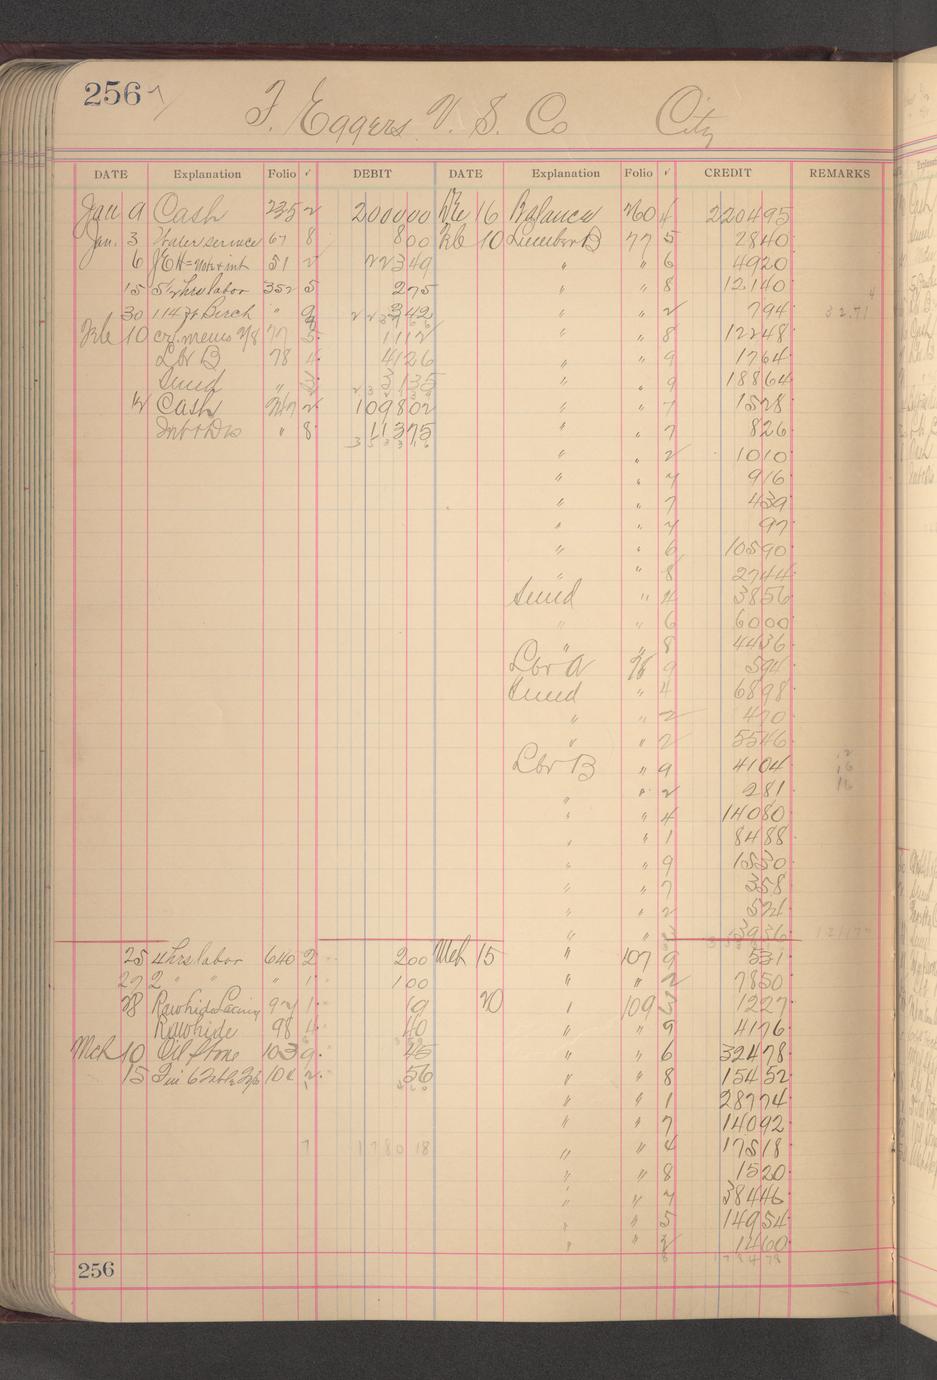 256
F. Eggers V. S. Co City
DATE Explanation Folio √ DEBIT DATE Explanation Folio √ CREDIT REMARKS
Jan 9 Cash 235 2 200000 16 Balance 760 220495
Jan. 3 Water service 67 8 800 Feb 10 Lumber B 77 5 2840
6 51 2 22349 " " 6 4920
15 5½ hrs labor 352 5 275 " " 8 12140
30 114 ft Birch " 9 342 " " 2 794 3271
Feb 10 cr. memo 77 5 1112 " " 8 12248
Lbr B 78 4 4126 " " 9 1764
Sund " 3 3135 " " 9 18864
12 Cash 2 109802 " " 7 1528
" 8 11375 " " 7 826
" " 2 1010
" " 7 916
" " 7 439
" " 7 97
" " 6 10590
" " 8 2744
Sund " 4 3856
" " 6 6000
" " 8 4436
Lbr A 76 9 594
Sund " 4 6898
" " 2 470
" " 2 5546
Lbr B " 9 4104
" " 2 281
" " 4 14080
" " 1 8488
" " 9 1530
" " 7 358
" " 2 521
" " 3 3936
25 4 hrs labor 640 2 200 Mch 15 " 107 9 531
27 2 " " " 1 100 " " 2 7850
28 Rawhide Lacing 1 19 20 " 109 3 1227
Rawhide 98 4 40 " " 9 4176
Mch 10 Oil stone 103 9 45 " " 6 32478
15 2 56 " " 8 15452
" " 1 28774
" " 7 14092
7 178018 " " 4 17518
" " 8 1520
" " 7 38446
" " 5 14954
" " 2 1460
256